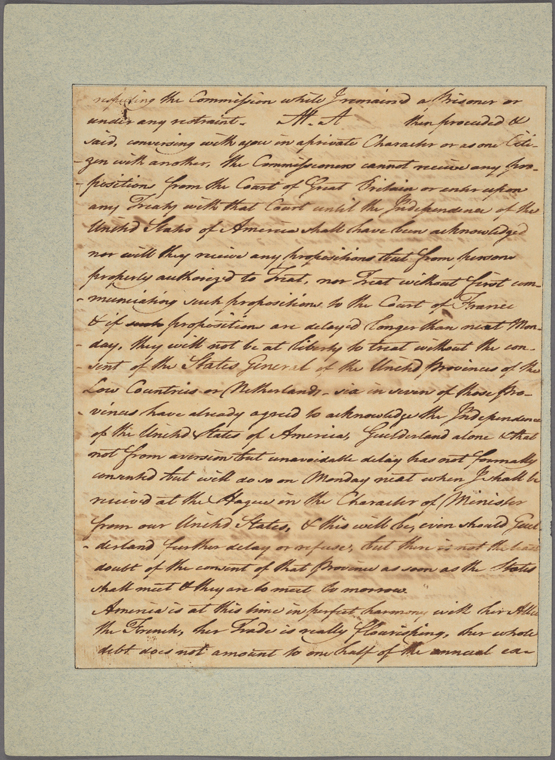 respecting the Commission while I remain'd a Prisoner or
under any restraint. Mr. A then proceeded &
said, conversing with you in a private Character or as one Citi-
-zen with another, the Commissioners cannot receive any pro-
-positions from the Court of Great Britain or enter upon
any Treaty with that Court until the Independence of the
United States of America shall have been acknowledged
nor will they receive any propositions but from persons
properly authorized to Treat, nor Treat without first com-
-municating such propositions to the Court of France
& if such propositions are delayed longer than next Mon-
-day, they will not be at liberty to treat without the con-
-sent of the States General of the United Provinces of the
Low Countries or Netherlands, six in seven of those Pro-
-vinces have already agreed to acknowledge the Independence
of the United States of America, Guelderland alone & that
not from aversion but unavoidable delay has not formally
but will do so on Monday next when I shall be
received at the Hague in the Character of Minister
from our United States, & this will be, even should Guel-
-derland further delay or refuse, but there is not the least
doubt of the consent of that Province as soon as the States
shall meet & they are to meet to morrow.
America is at this time in perfect harmony with her Allies
the French, her Trade is really flourishing, her whole
debt does not amount to one half of the annual ex-